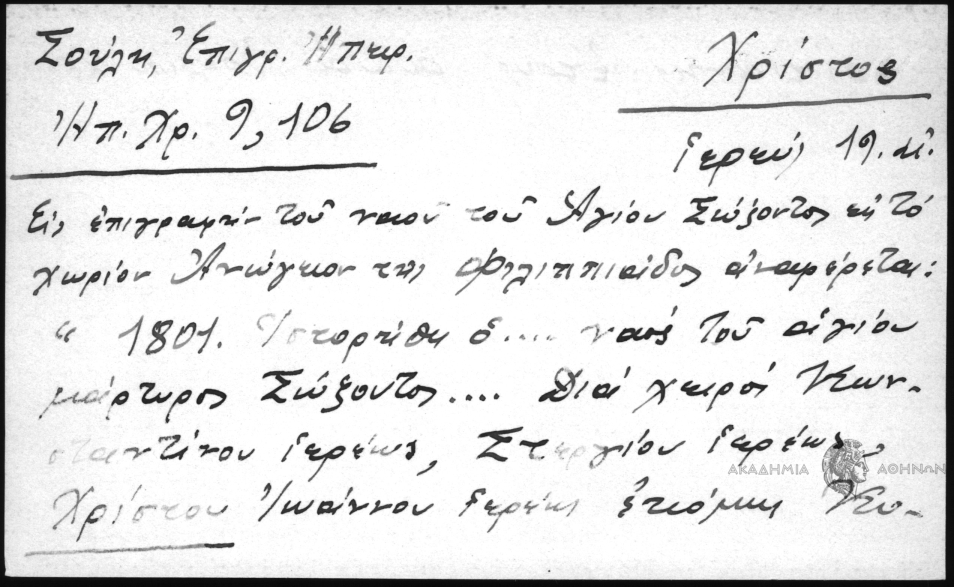 Σούλη, Ἐπιγρ. Ἠπειρ.
Χρίστος
Ἠπ. Χρ. 9, 106
ἱερεύς 19. αἰ.
Εἰς ἐπιγραφὴν τοῦ ναοῦ τοῦ Ἁγίου Σώζοντος εἰς τὸ
χωρίον Ἀνώγειον τῆς Φιλιππιάδος ἀναφέρεται:
" 1801. Ἱστορήθη ὁ .... ναὸς τοῦ ἁγίου
μάρτυρος Σώζοντος .... Διὰ χειρὸς Κων-
σταντίνου ἱερέως, Στεργίου ἱερέως,
ΑΚΑΔΗΜΙΑ ΑΘΗΝΩΝ
Χρίστου Ἰωάννου ἱερέως Κυ-